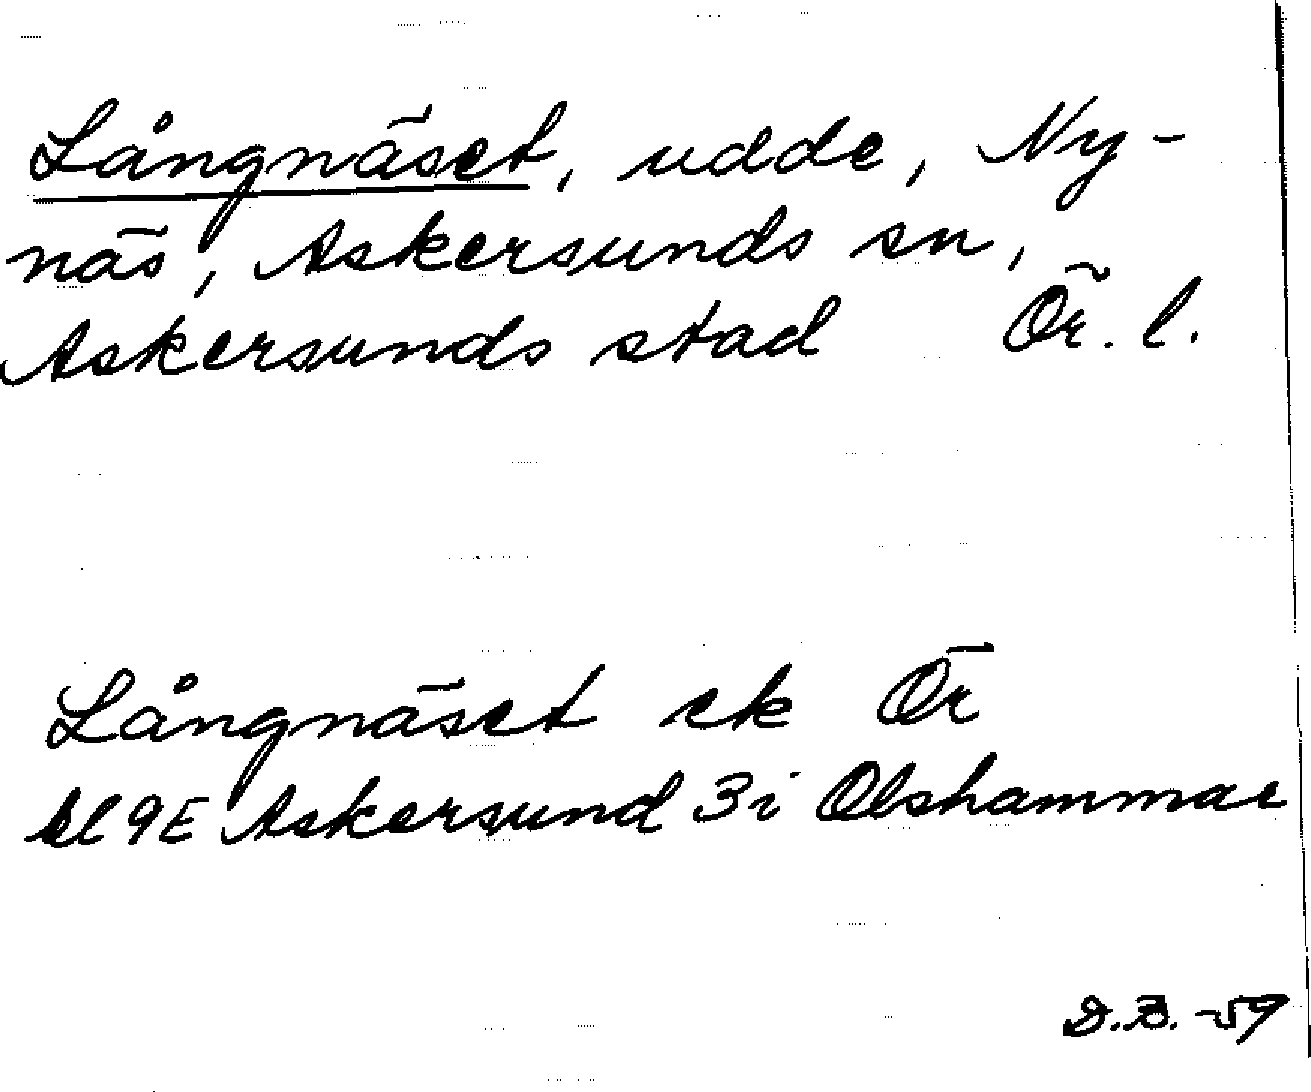 Långnäset, udde, Ny-
näs, Askersunds sn,
Askersunds stad Ör. l.
Långnäset ek Ör
bl 9E Askersund 3i Olshammar
D.B. -59